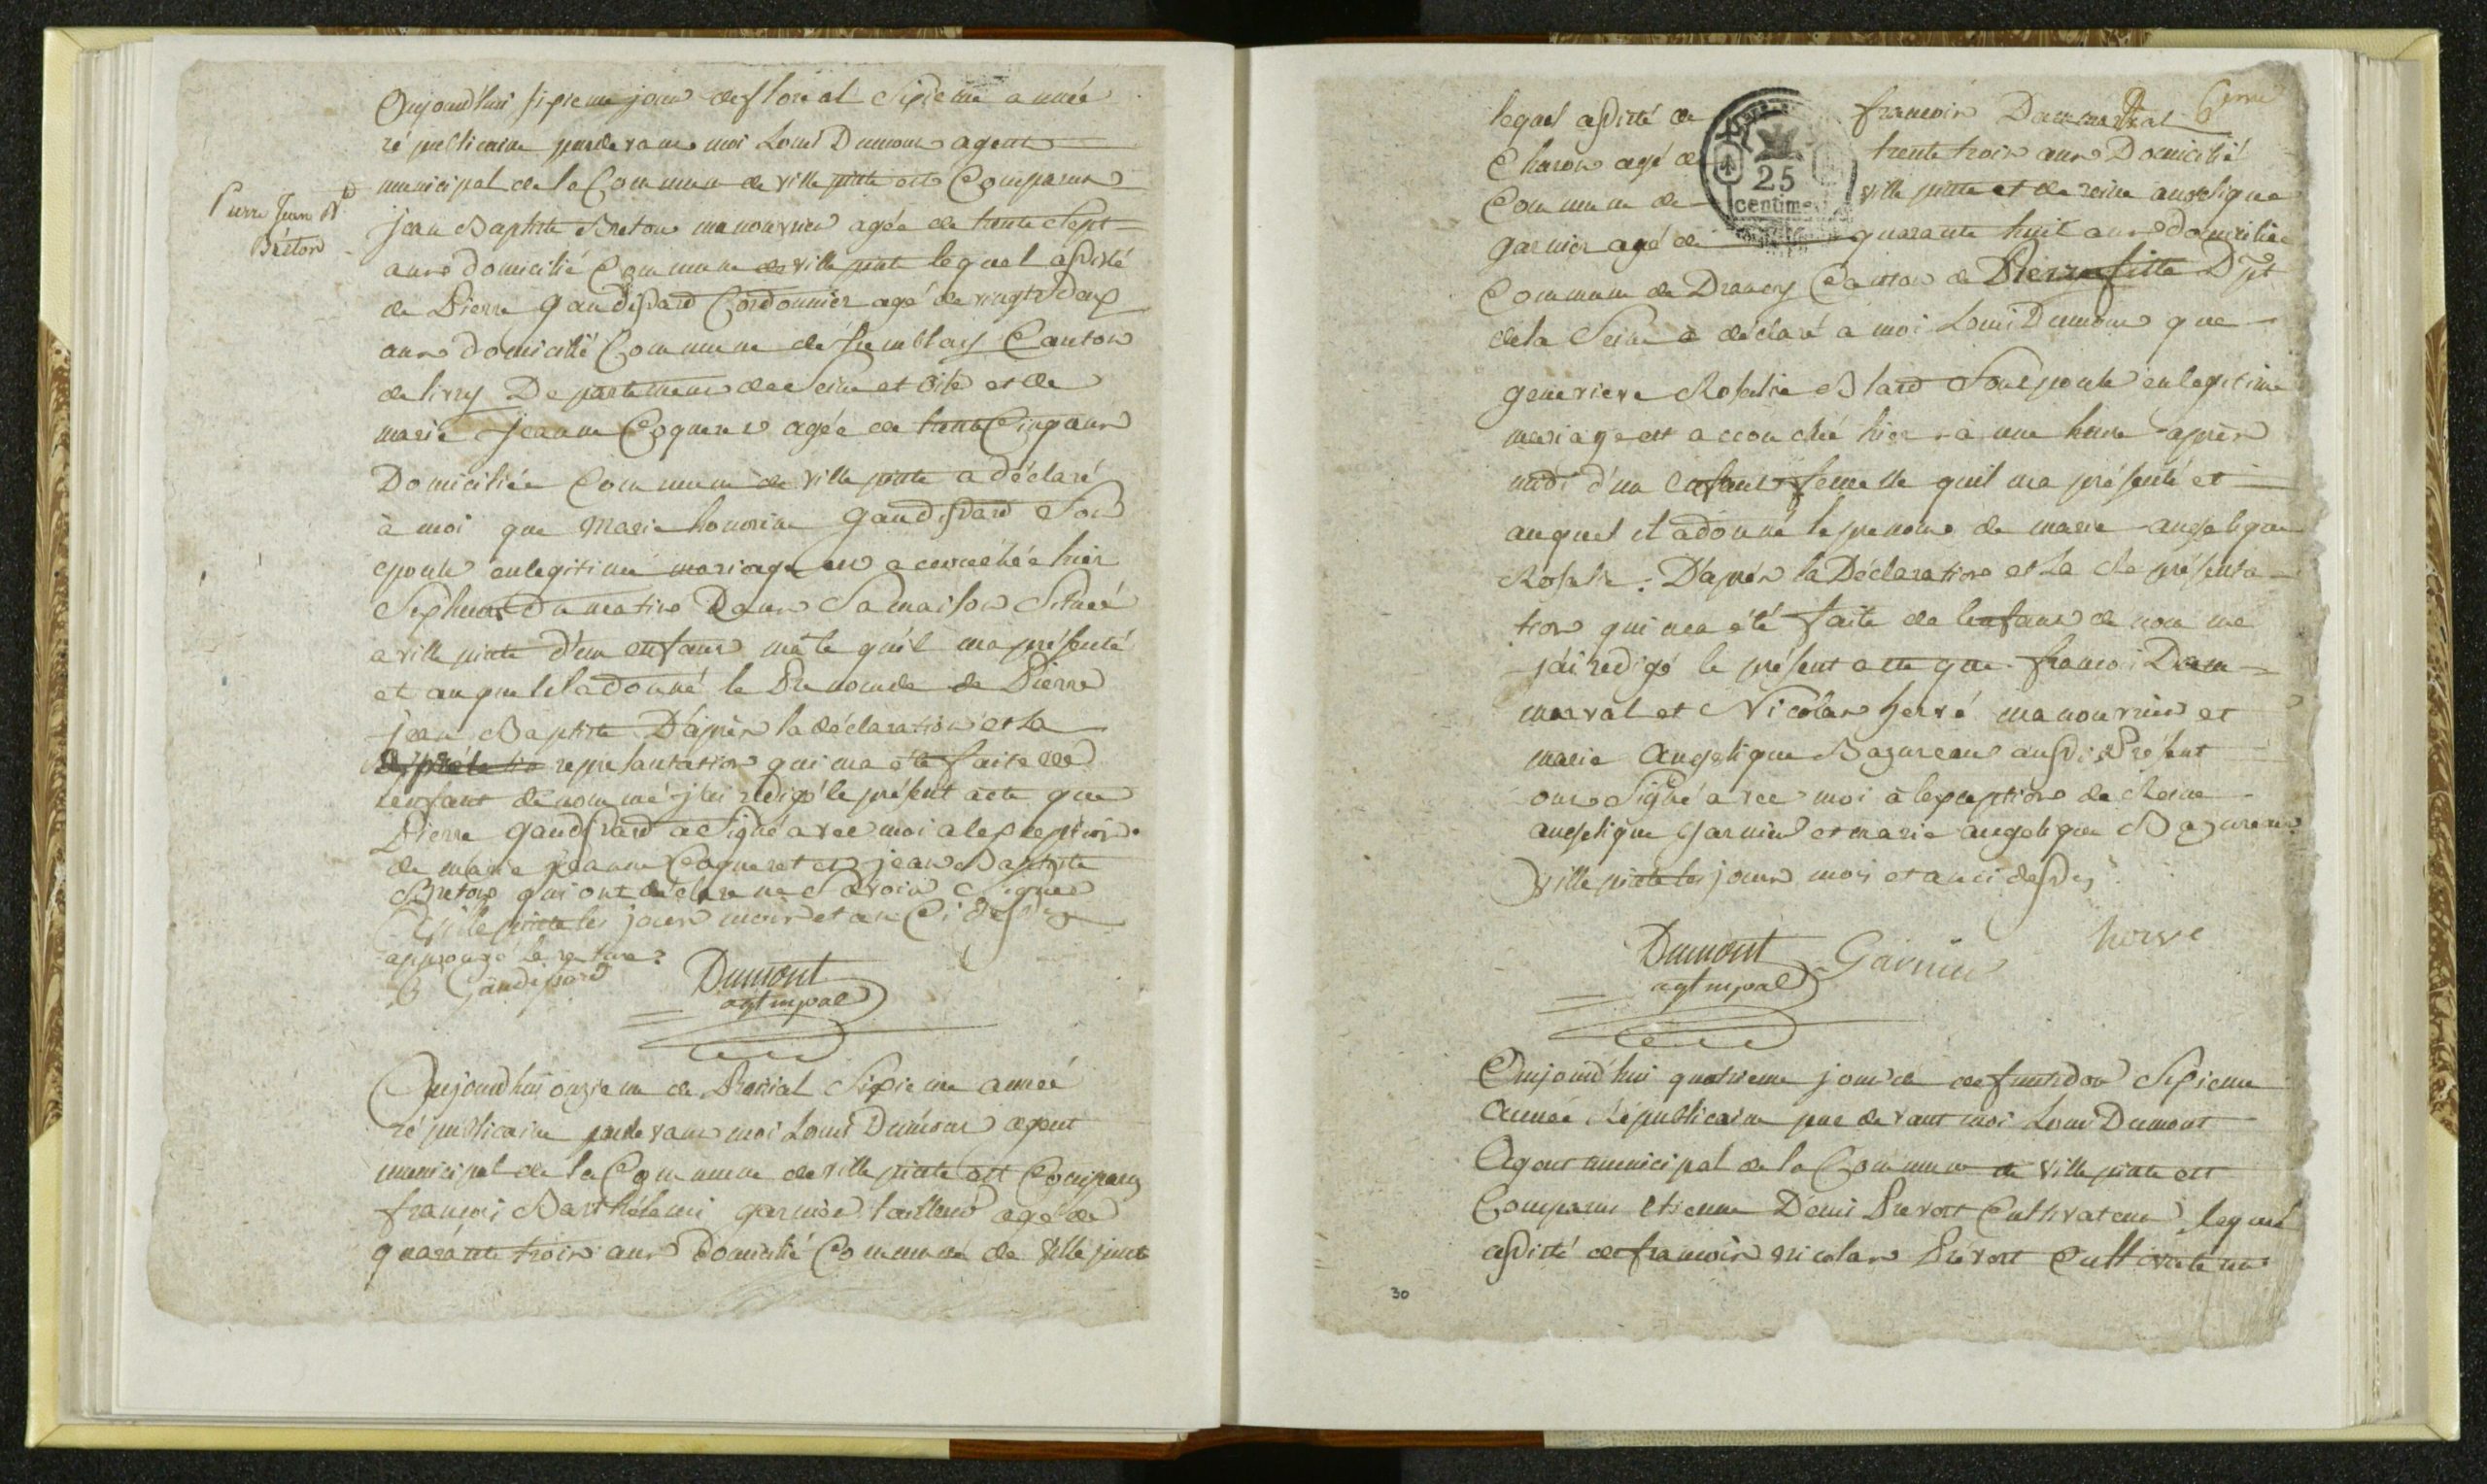 Oujourd'hui sixieme jour de floréal Sixieme année
républicaine pardevant moi Louis Dumont agent
municipal de la Commune de villepinte est Comparu
Pierre Jean Bte
Bréton
jean Baptiste Breton manouvrier agée de trente Sept
ans domicilié Commune de villepinte lequel assisté
de Pierre Gaudissard Cordonnier agé de vingt deux
ans domicilié Commune de Tremblay Canton
de livry Departement de Seine et Oise et de
marie Jeanne Coqueret agée de trente Cinq ans
Domiciliée Commune de villepinte a déclaré
à moi que Marie honorine Gaudissard Son
epouse en legitime mariage est accouchée hier
Sept heures du matin Dans Sa maison Située
a villepinte d'un enfant mâle qu'il ma présenté
et auquel il a donné le Prenom de de Pierre
jean Baptiste D'après la déclaration et la
représantation qui ma été faite de
l'enfant dénommé j'ai redigé le présent acte que
Pierre Gaudissard a Signé avec moi a lexception
de marie jeanne Coqueret et jean Baptiste
Breton qui ont déclaré ne Savoir Signer
villepinte les jour mois et an Ci dessus
approuvé la rature
Gaudissard
Dumont
agt mpal
Oujourdhui onzieme de Prairial Sixieme année
républicaine pardevant moi Louis Dumont agent
municipal de la Commune de villepinte est Comparu
françois Barthélemi garnier tailleur agé de
quarante trois ans domicilié Commune de Villepinte
lequel assisté de françois Dammarval
Charon agé de trente trois ans Domicilié
Commune de villepinte et de reine angelique
garnier agé de quarante huit ans domiciliée
Commune de Drancy Canton de Pierrefitte Dpt
de la Seine à déclaré a moi Louis Dumont que
genevieve Rosalie Blard Son epouse en legitime
mariage est accouchée hier à une heure après
midi d'un enfant femelle quil ma présenté et
auquel il a donné le prenom de marie angelique
Rosalie. D'après la Déclaration et La Représenta-
tion qui ma été faite de lenfant denommé
j'ai redigé le présent acte que françoi Dam-
marval et Nicolas hervé manouvrier et
marie Angelique Bazureau aussi Présent
ont Signé avec moi à lexception de Reine
angelique Garnier et marie angelique Bazureau
villepinte les jour mois et an ci dessus
Dumont
agt mpal
Garnier
herve
25
centimes
Oujourd'hui quatrieme jour de fructidor Sixieme
année Républicaine par devant moi Louis Dumont
Agent municipal de la Commune de villepinte est
Comparu Etienne Denis Prevost Cultivateur lequel
assisté de françois nicolas Prévost Cultivateur
30